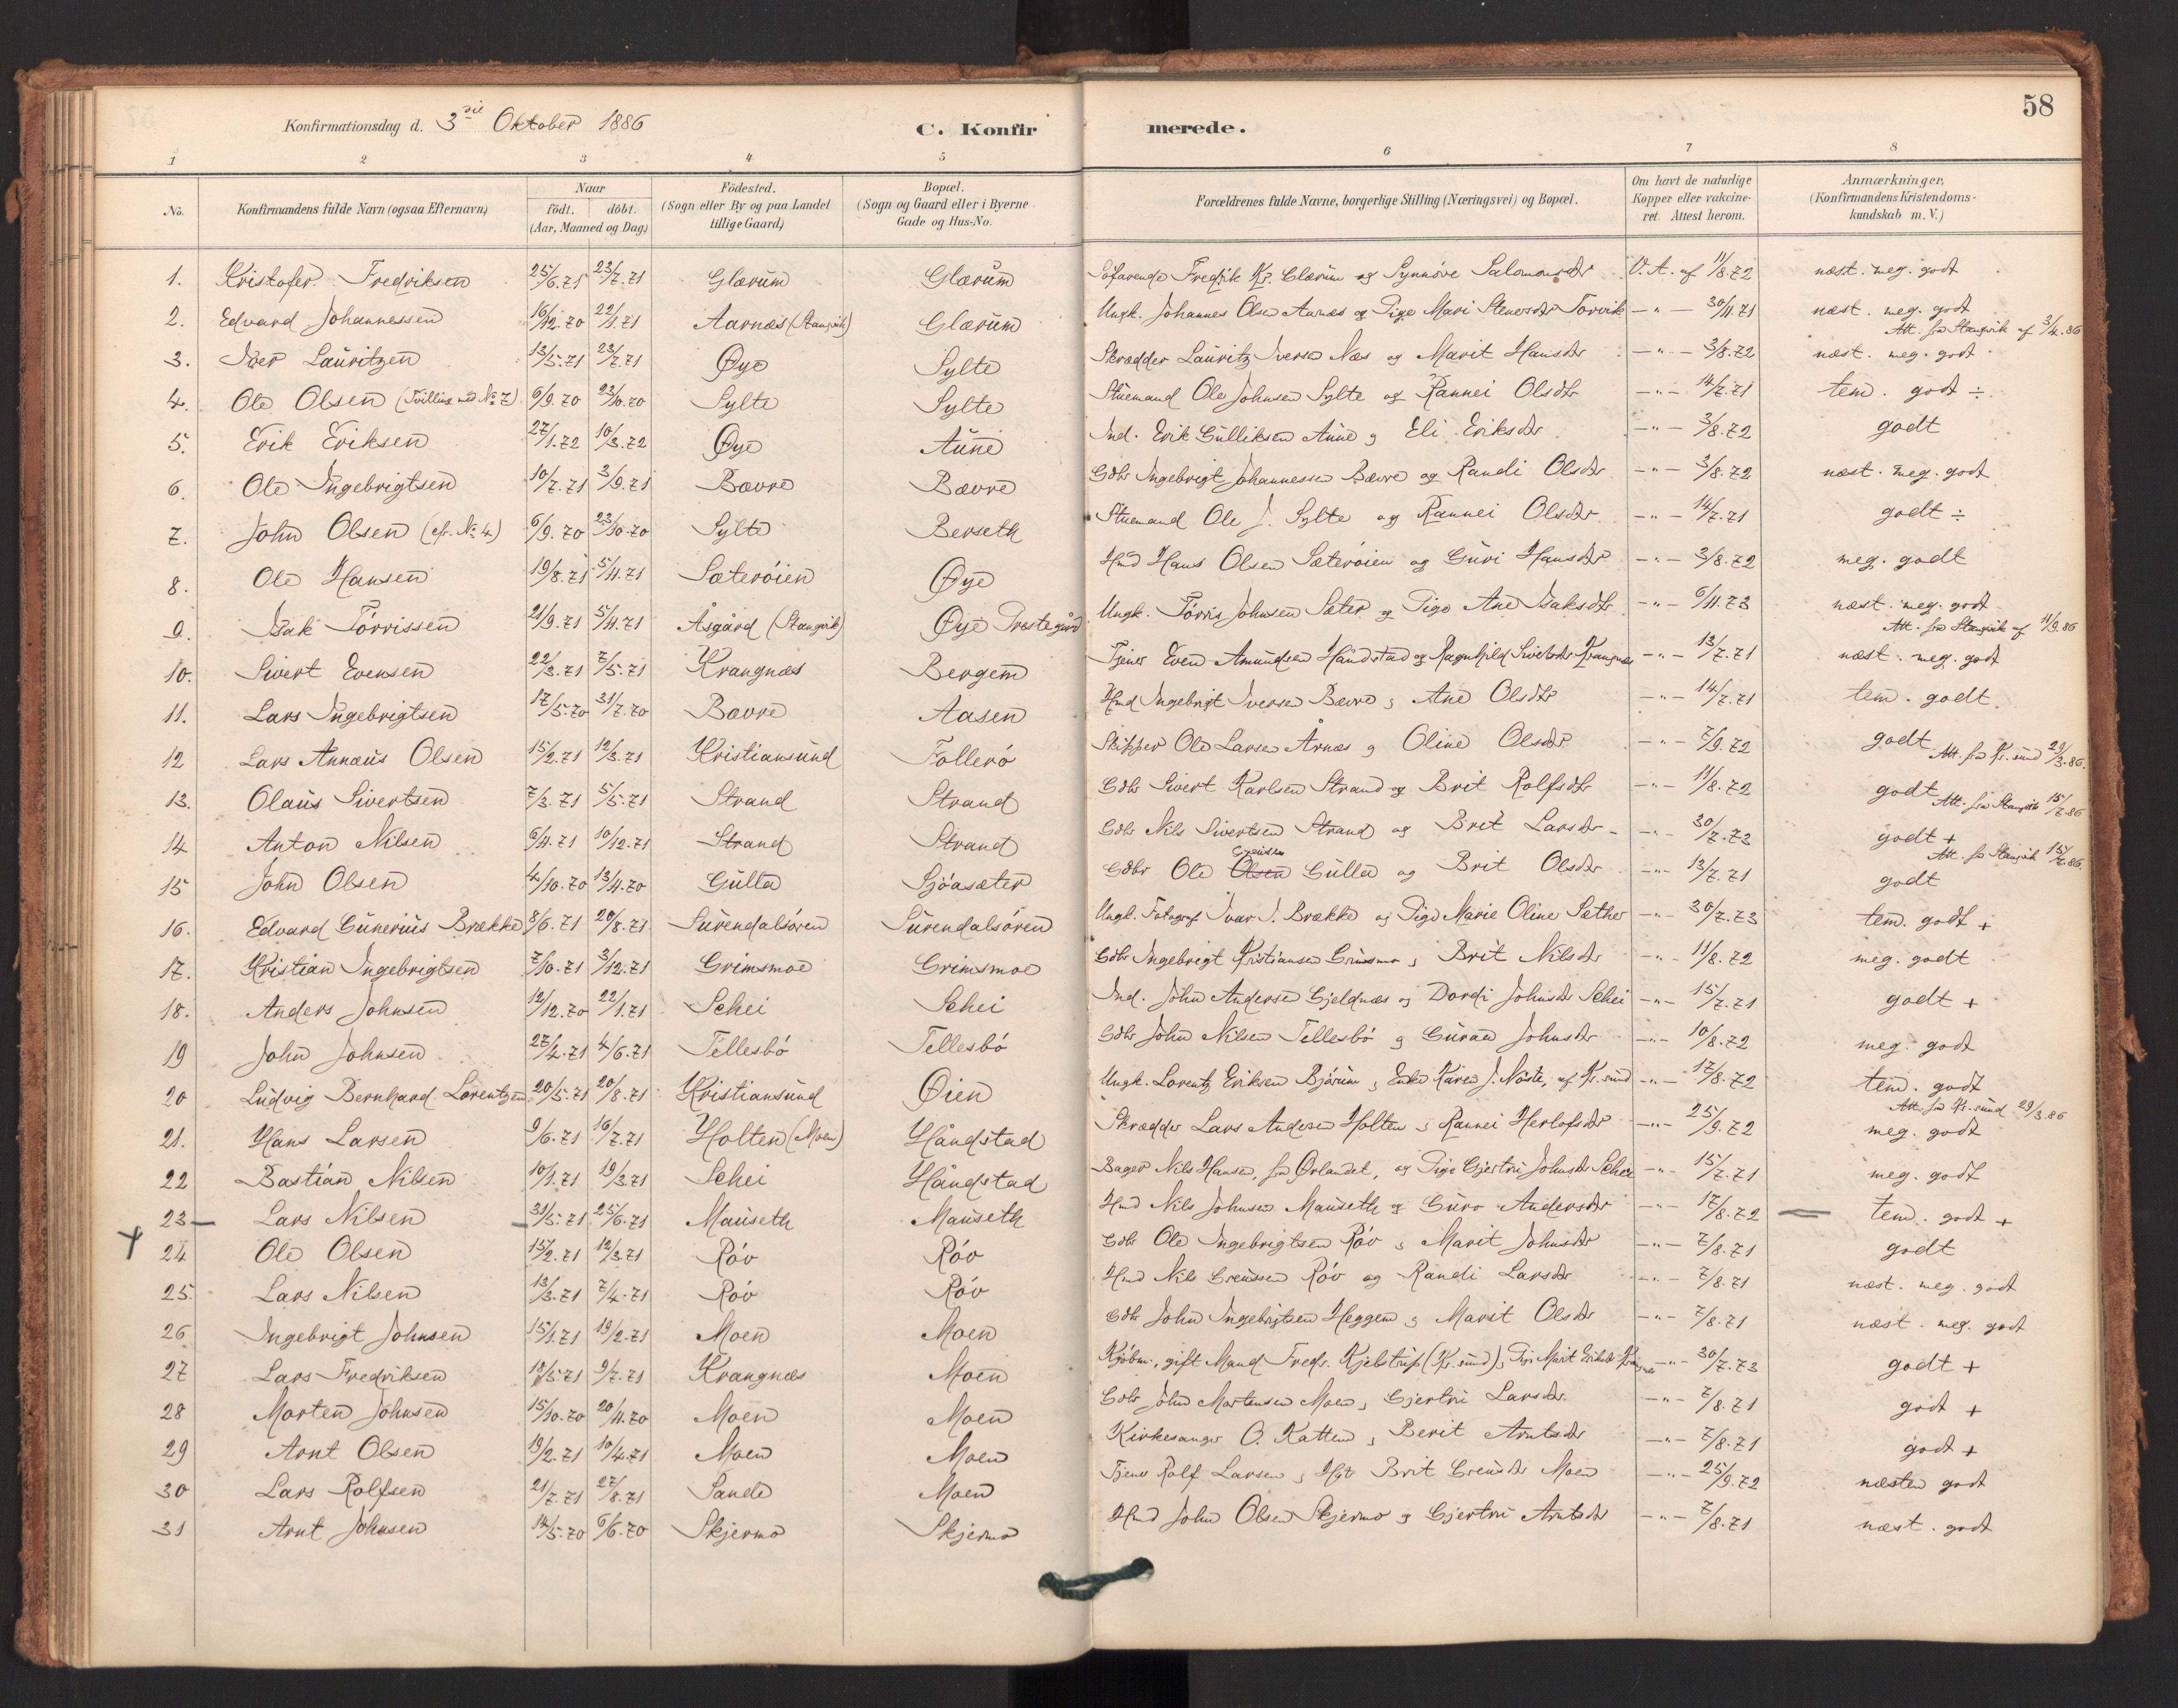 58
Konfirmationsdag d. 3die Oktober 1886
C. Konfirmerede.
1 2 3 4 5 6 7 8
No. Konfirmandens fulde Navn (ogsaa Efternavn) Naar födt. döbt. (Aar, Maaned og Dag) Födested. (Sogn eller By og paa Landet tillige Gaard) Bopæl. (Sogn og Gaard eller i Byerne Gade og Hus-No. Forældrenes fulde Navne, borgerlige Stilling (Næringsvei) og Bopæl. Om havt de naturlige Kopper eller vakcineret. Attest herom. Anmærkninger, (Konfirmandens Kristendomskundskab m. V.)
1. Kristofer Fredriksen 25/6.71 23/7.71 Glærum Glærum Söfarende Fredrik Kr. Glærum og Synnöve Salomonsdtr V. A. af 11/8.72 næst. meg. godt
2. Edvard Johannessen 16/12.70 22/1.71 Aarnæs (Stangvik) Glærum Ungk. Johannes Olsen Aarnæs og Pige Mari Stenersdtr Torvik —"— 30/11.71 næst. meg. godt
Att. fra Stangvik af 3/4.86
3. Iver Lauritzen 13/5.71 23/7.71 Øye Sylte Skrædder Lauritz Iversen Næs og Marit Hansdtr —"— 3/8.72 næst. meg. godt
4. Ole Olsen (Tvilling med No 7) 6/9.70 23/10.70 Sylte Sylte Stuemand Ole Johnsen Sylte og Rannei Olsdtr —"— 14/7.71 tem. godt ÷
5. Erik Eriksen 27/1.72 10/3.72 Øye Aune Ind. Erik Gulliksen Aune og Eli Eriksdtr —"— 3/8.72 godt
6. Ole Ingebrigtsen 10/7.71 3/9.71 Bævre Bævre Gdbr Ingebrigt Johannessen Bævre og Randi Olsdtr —"— 3/8.72 næst. meg. godt
7. John Olsen (cfr. No 4) 6/9.70 23/10.70 Sylte Berseth Stuemand Ole J. Sylte og Rannei Olsdtr —"— 14/7.71 godt ÷
8. Ole Hansen 19/8.71 5/11.71 Sæteröien Øye Hmd Hans Olsen Sæteröien og Guri Hansdtr —"— 3/8.72 meg. godt
9. Isak Törrissen 21/9.71 5/11.71 Åsgård (Stangvik) Øye Præstegård Ungk. Törris Johnsen Sæter og Pige Ane Isaksdtr —"— 6/11.73 næst. meg. godt
Att. fra Stangvik af 11/9.86
10. Sivert Evensen 22/3.71 7/5.71 Krangnæs Bergem Tjener Even Amundsen Håndstad og Ragnhild Sivertsdtr Krangnæs —"— 13/7.71 næst. meg. godt
11. Lars Ingebrigtsen 17/5.70 31/7.70 Bævre Aasen Hmd Ingebrigt Iversen Bævre og Ane Olsdtr —"— 14/7.71 tem. godt.
12 Lars Annæus Olsen 15/2.71 12/3.71 Kristiansund Tollerö Skipper Ole Larsen Årnæs og Oline Olsdtr —"— 7/9.72 godt
Att. fra Kr.sund 29/3.86.
13. Olaus Sivertsen 7/3.71 5/5.71 Strand Strand Gdbr Sivert Karlsen Strand og Brit Rolfsdtr —"— 11/8.72 godt
Att. fra Stangvik 15/7.86
14 Anton Nilsen 6/11.71 10/12.71 Strand Strand Gdbr Nils Sivertsen Strand og Brit Larsdtr —"— 30/7.73 godt +
Att. fra Stangvik 15/7.86.
15 John Olsen 4/10.70 13/11.70 Gulla Sjöasæter Gdbr Ole Olsen Gulla og Brit Olsdtr —"— 13/7.71 godt
16. Edvard Gunerius Brække 8/6.71 20/8.71 Surendalsören Surendalsören Ungk. Fotograf Ivar J. Brække og Pige Marie Oline Sæther —"— 30/7.73 tem. godt +
17. Kristian Ingebrigtsen 7/10.71 3/12.71 Grimsmoe Grimsmoe Gdbr Ingebrigt Kristiansen Grimsmo og Brit Nilsdtr —"— 11/8.72 meg. godt
18. Anders Johnsen 12/12.70 22/1.71 Schei Schei Ind. John Andersen Gjeldnæs og Dordi Johnsdtr Schei —"— 15/7.71 godt +
19 John Johnsen 27/4.71 4/6.71 Tellesbö Tellesbö Gdbr John Nilsen Tellesbö og Guran Johnsdtr —"— 10/8.72 meg. godt
20 Ludvig Bernhard Lorentzen 20/5.71 20/8.71 Kristiansund Øien Ungk. Lorentz Eriksen Bjørum og Enke Karen J. Nöste, af Kr.sund —"— 17/8.72 tem. godt
Att. fra Kr.sund 29/3.86
21. Hans Larsen 9/6.71 16/7.71 Holten (Moen) Håndstad Skrædder Lars Andersen Holten og Rannei Herlofsdtr —"— 25/9.72 meg. godt
22 Bastian Nilsen 10/1.71 19/3.71 Schei Håndstad Bager Nils Hansen, fra Ørlandet, og Pige Gjertru Johnsdtr Schei —"— 15/7.71 meg. godt
23 Lars Nilsen 31/5.71 25/6.71 Mauseth Mauseth Hmd Nils Johnsen Mauseth og Guro Andersdtr —"— 17/8.72 tem. godt +
24 Ole Olsen 15/2.71 12/3.71 Röv Röv Gdbr Ole Ingebrigtsen Röv og Marit Johnsdtr —"— 7/8.71 godt
25. Lars Nilsen 13/3.71 7/4.71 Röv Röv Hmd Nils Greussen Röv og Randi Larsdtr —"— 7/8.71 næst. meg. godt
26 Ingebrigt Johnsen 15/1.71 19/2.71 Moen Moen Gdbr John Ingebrigtsen Heggem og Marit Olsdtr —"— 7/8.71 næst. meg. godt
27 Lars Fredriksen 18/5.71 9/7.71 Krangnæs Moen Kjöbm., gift Mand Fredr. Kjelstrup (Kr.sund) og Pige Marit Eriksdtr —"— 30/7.73 godt +
28 Morten Johnsen 15/10.70 20/11.70 Moen Moen Gdbr John Mortensen Moen og Gjertru Larsdtr —"— 7/8.71 godt +
29 Arnt Olsen 19/2.71 10/4.71 Moen Moen Kirkesanger O. Kattem og Berit Arntsdtr —"— 7/8.71 godt +
30 Lars Rolfsen 21/7.71 27/8.71 Sande Moen Tjener Rolf Larsen og Brit Greusdtr Moen —"— 25/9.72 næsten godt
31 Arnt Johnsen 14/5.70 6/6.70 Skjermo Skjermo Hmd John Olsen Skjermo og Gjertru Arntsdtr —"— 7/8.71 næst. godt